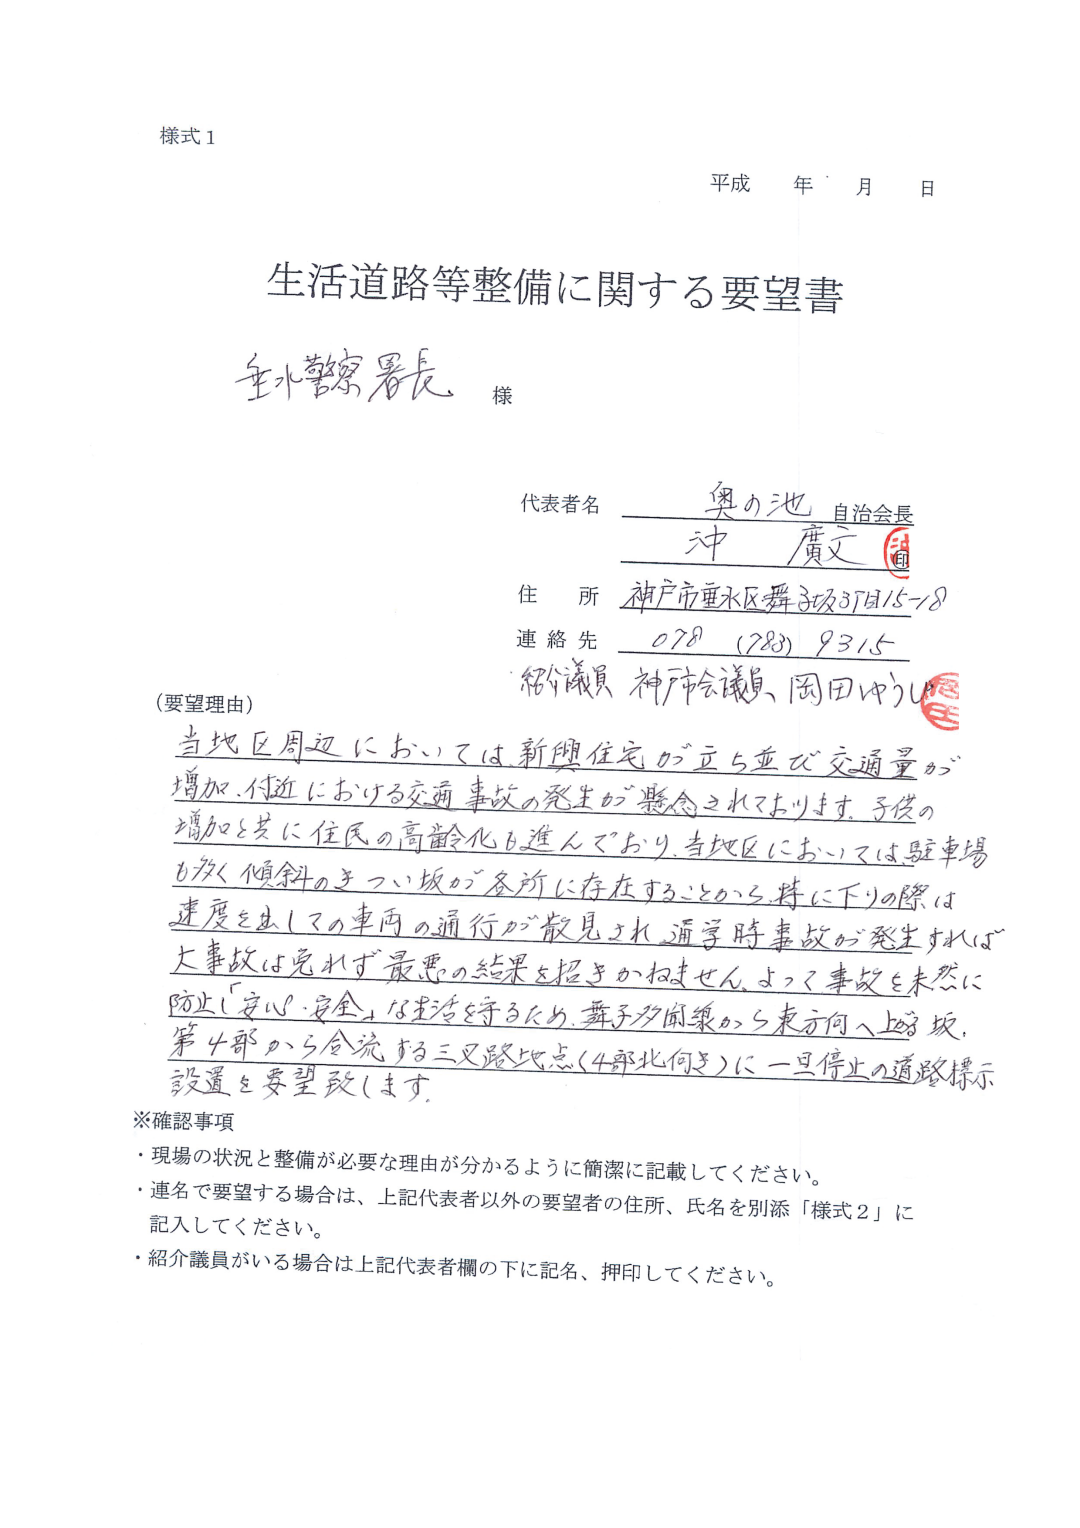 様式1
平成　　年　　月　　日
生活道路等整備に関する要望書
垂水警察署長 様
代表者名 奥の池 自治会長
沖　廣文 ㊞
住　所 神戸市垂水区舞子坂3丁目15-18
連絡先 078 (783) 9315
紹介議員 神戸市会議員、岡田ゆうじ
(要望理由)
当地区周辺においては、新興住宅が立ち並び交通量が
増加、付近における交通事故の発生が懸念されております。子供の
増加と共に住民の高齢化も進んでおり、当地区においては、駐車場
も多く傾斜のきつい坂が各所に存在することから、特に下りの際は
速度を出しての車両の通行が散見され通学時事故が発生すれば
大事故は免れず最悪の結果を招きかねません。よって事故を未然に
防止し「安心・安全」な生活を守るため、舞子多聞線から東方向へ上がる坂、
第4部から合流する三叉路地点(4部北向き)に一旦停止の道路標示
設置を要望致します。
※確認事項
・現場の状況と整備が必要な理由が分かるように簡潔に記載してください。
・連名で要望する場合は、上記代表者以外の要望者の住所、氏名を別添「様式2」に
記入してください。
・紹介議員がいる場合は上記代表者欄の下に記名、押印してください。